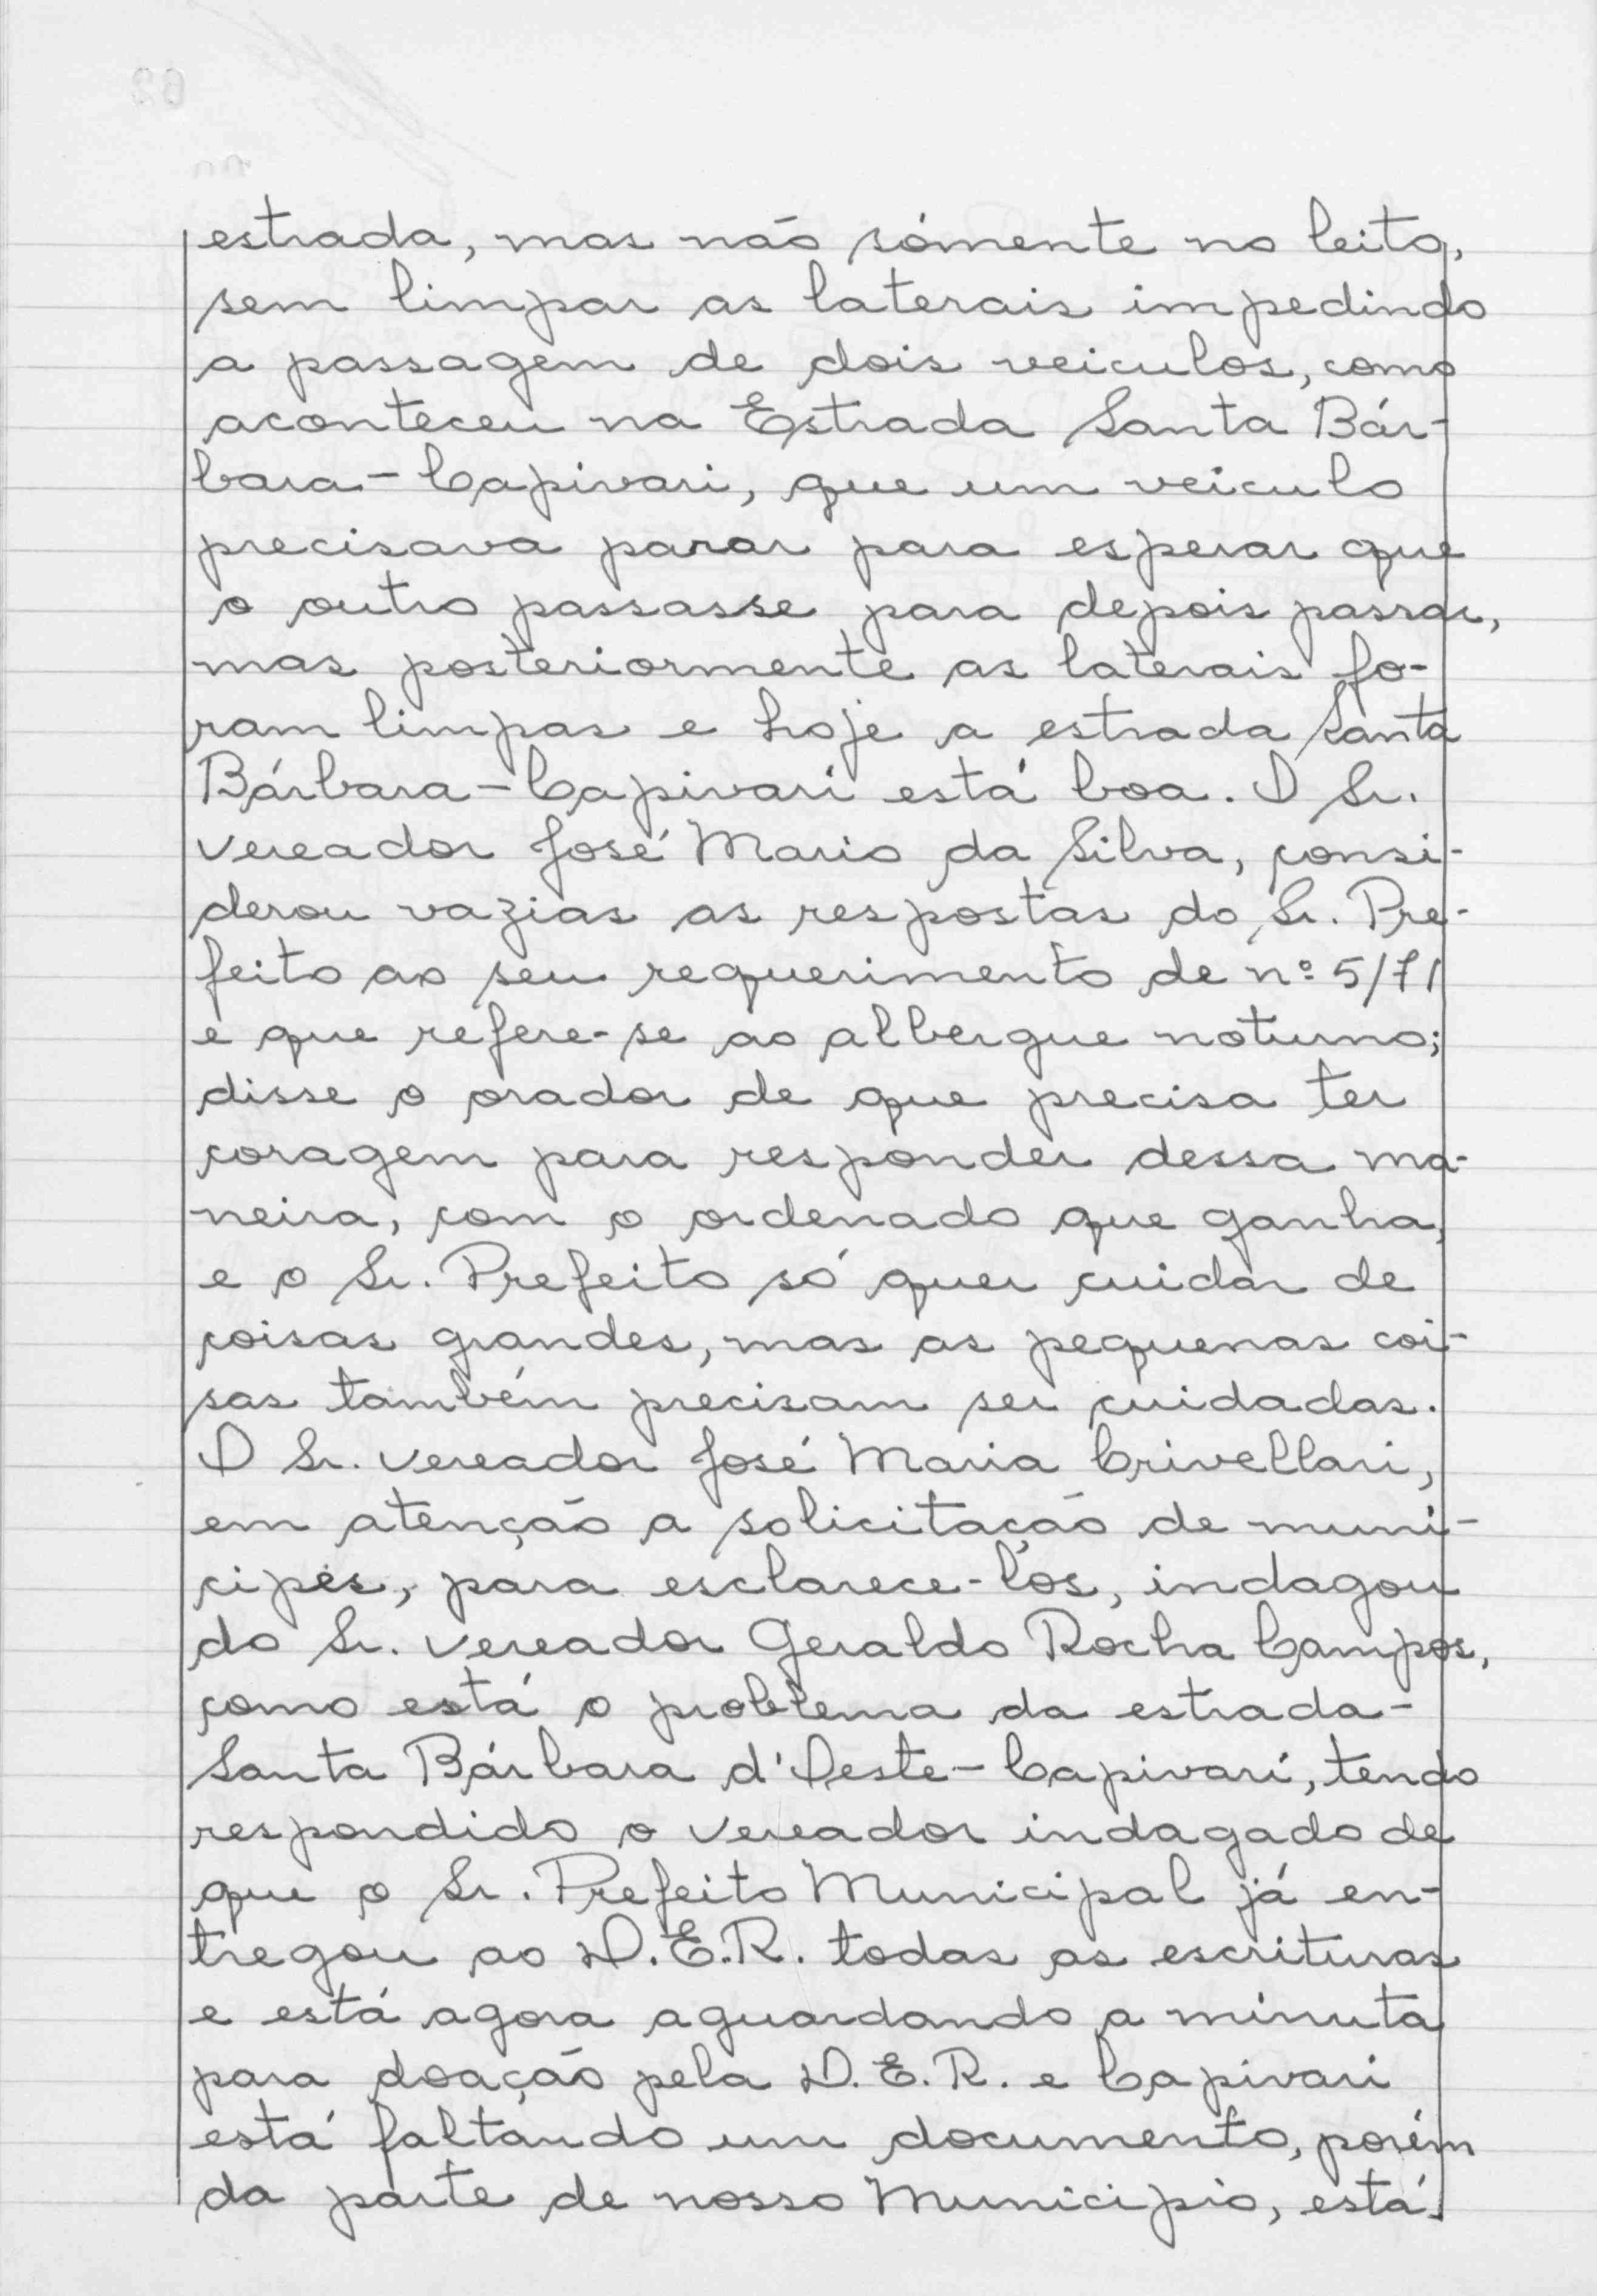 estrada, mas não sómente no leito,
sem limpar as laterais impedindo
a passagem de dois veiculos, como
aconteceu na Estrada Santa Bár-
bara - Capivari, que um veiculo
precisava parar para esperar que
o outro passasse para depois passar,
mas posteriormente as laterais fo-
ram limpas e hoje a estrada Santa
Bárbara - Capivari está boa. O Sr.
vereador José Maria da Silva, consi-
derou vazias as respostas do Sr. Pre-
feito ao seu requerimento de nº 5/71
e que refere-se ao albergue noturno;
disse o orador de que precisa ter
coragem para responder dessa ma-
neira, com o ordenado que ganha,
e o Sr. Prefeito só quer cuidar de
coisas grandes, mas as pequenas coi-
sas também precisam ser cuidadas.
O Sr. vereador José Maria Crivellari,
em atenção a solicitação de muni-
cipes, para esclarece-los, indagou
do Sr. vereador Geraldo Rocha Campos,
como está o problema da estrada -
Santa Bárbara d'Oeste - Capivari, tendo
respondido o vereador indagado de
que o Sr. Prefeito Municipal já en-
tregou ao D.E.R. todas as escrituras
e está agora aguardando a minuta
para doação pela D.E.R. e Capivari
está faltando um documento, porém
da parte de nosso Municipio, está